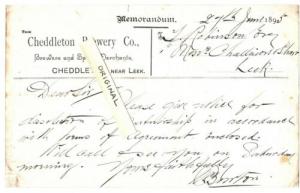 Memorandum.
From
Cheddleton Brewery Co.,
Brewers and Spirit Merchants,
CHEDDLETON, NEAR LEEK.
ORIGINAL
Robinson Esq
Mess Challinors & Shaw
Leek.
Dear Sir
Please give notice for
dissolution of Partnership in accordance
with terms of Agreement enclosed
Will call & see you on Saturday
morning. Yours faithfully